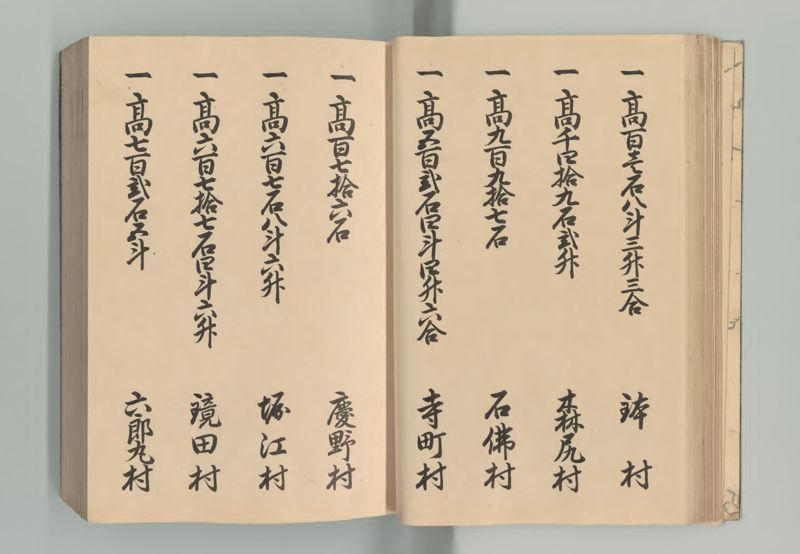 一高百壱石八斗三升三合 鉢村
一高千四拾九石弐升 森尻村
一高九百九拾七石 石佛村
一高五百弐石四斗四升六合 寺町村
一高百七拾六石 慶野村
一高六百七石八斗六升 堀江村
一高六百七拾七石四斗六升 鏡田村
一高七百弐石五斗 六郎丸村